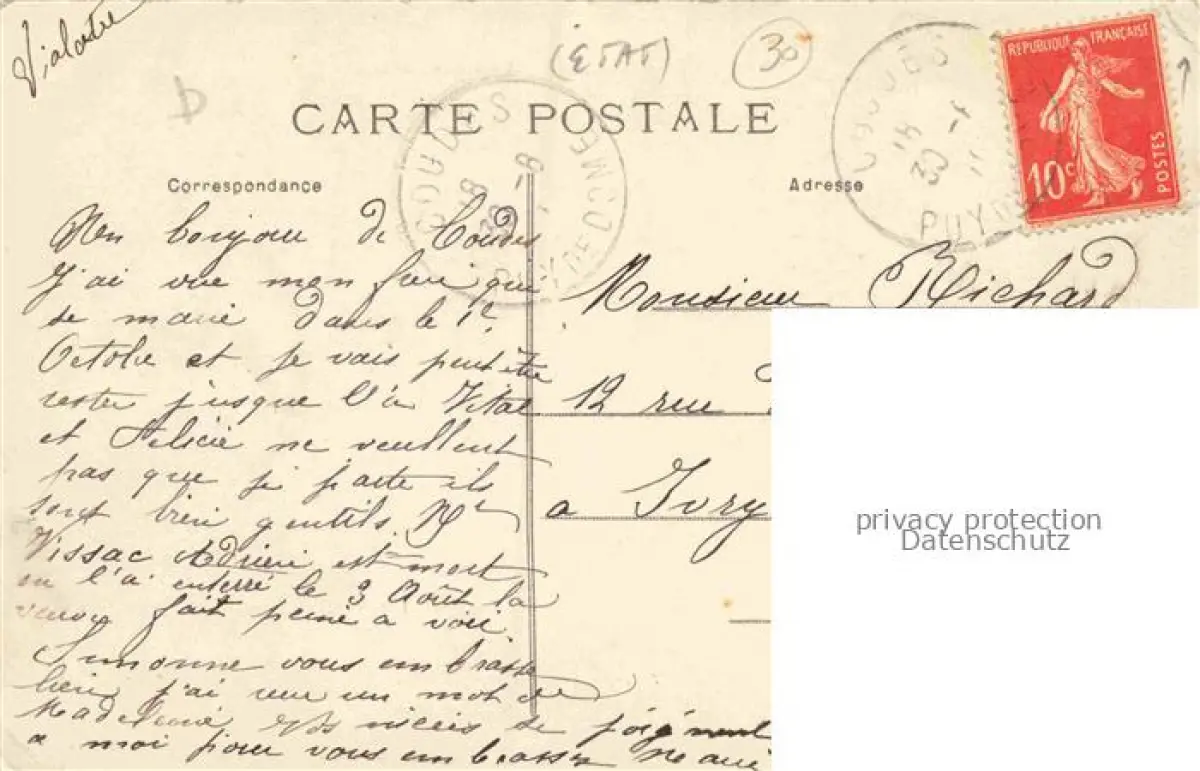 (ETAT)
30
CARTE POSTALE
REPUBLIQUE FRANÇAISE
10c
POSTES
PUY
Correspondance
Adresse
Un bonjour de Coudes
J'ai vue mon frère qui
se marie dans le 1er
Octobre et je vais peut être
rester jusque l'a Vital
et Felicie ne veullent
pas que je parte ils
sont bien gentils Mr
Vissac Adrien est mort
on l'a enterré le 3 Août la
veuve fait peine a voir
Simonne vous embrasse
bien j'ai reçu un mot de
Madeleine vos nieces se joignent
a moi pour vous embrasser
Monsieur Richard
12 rue
a Ivry
privacy protection
Datenschutz